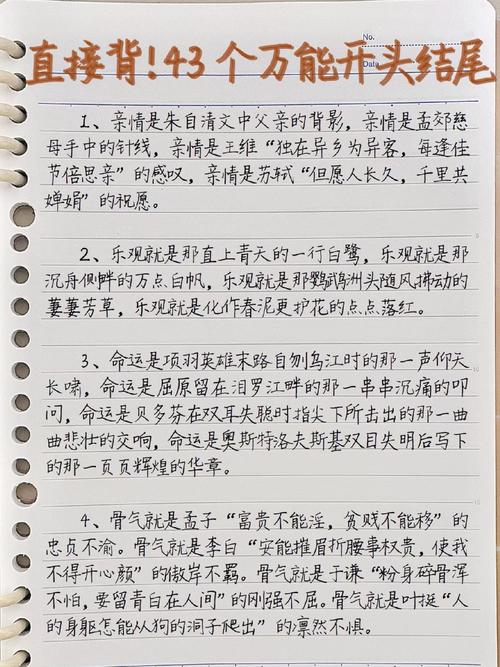 No.
Date
直接背!43个万能开头结尾
1、亲情是朱自清文中父亲的背影，亲情是孟郊慈
母手中的针线，亲情是王维“独在异乡为异客，每逢佳
节倍思亲”的感叹，亲情是苏轼“但愿人长久，千里共
婵娟”的祝愿。
2、乐观就是那直上青天的一行白鹭，乐观就是那
沉舟侧畔的万点白帆，乐观就是那鹦鹉洲头随风拂动的
萋萋芳草，乐观就是化作春泥更护花的点点落红。
3、命运是项羽英雄末路自刎乌江时的那一声仰天
长啸，命运是屈原留在汨罗江畔的那一串串沉痛的叩
问，命运是贝多芬在双耳失聪时指尖下所击出的那一曲
曲悲壮的交响，命运是奥斯特洛夫斯基双目失明后写下
的那一页页辉煌的华章。
4、骨气就是孟子“富贵不能淫，贫贱不能移”的
忠贞不渝。骨气就是李白“安能摧眉折腰事权贵，使我
不得开心颜”的傲岸不羁。骨气就是于谦“粉身碎骨浑
不怕，要留青白在人间”的刚强不屈。骨气就是叶挺“人
的身躯怎能从狗的洞子爬出”的凛然不惧。